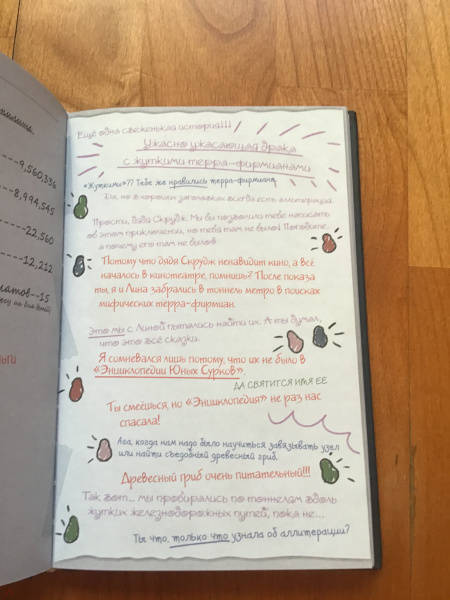 ---9,560,336
---8,994,545
---22,560
---12,212
Ещё одна свеженькая история!!!
Ужасно ужасающая драка
с жуткими терра-фирмианами
«Жуткими»?? Тебе же нравились терра-фирмиане.
но в хороших заголовках всегда есть аллитерация.
Прости, дядя Скрудж. Мы бы позволили тебе написать
об этом приключении, но тебя там не было. Погодите...
а почему его там не было?
Потому что дядя Скрудж ненавидит кино, а всё
началось в кинотеатре, помнишь? После показа
ты, я и Лина забрались в тоннель метро в поисках
мифических терра-фирмиан.
Это мы с Линой пытались найти их. А ты думал,
что это всё сказки.
Я сомневался лишь потому, что их не было в
«Энциклопедии Юных Сурков».
ДА СВЯТИТСЯ ИМЯ ЕЁ
Ты смеёшься, но «Энциклопедия» не раз нас
спасала!
Ага, когда нам надо было научиться завязывать узел
или найти съедобный древесный гриб.
Древесный гриб очень питательный!!!
Так вот... мы пробирались по тоннелям вдоль
жутких железнодорожных путей, пока не...
Ты что, только что узнала об аллитерации?